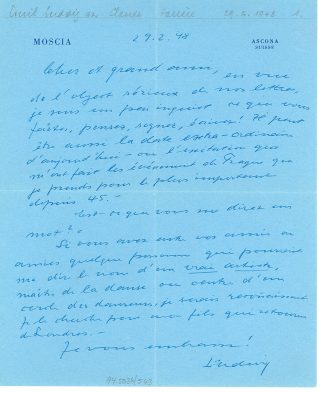 Emil Ludwig an Claude Farrère 29.2.1948 1.
MOSCIA
ASCONA
SUISSE
29.2.48
Cher et grand ami, en vue
de l'objet sérieux de nos lettres,
je suis un peu inquiet ce que vous
faites, pensez,
être aussi la date extra-ordinaire
d'aujourd'hui - ou l'excitation que
m'ont fait les événements de Prague que
je prends pour le plus important
depuis 45. -
Est-ce que vous me direz un
mot?
Si vous avez entre vos amis ou
amies quelque personne que pourrait
me dire le nom d'un vrai artiste,
maître de la danse ou centre d'un
cercle des danseurs, je serais reconnaissant
Je le cherche pour mon fils qui retourne
de Londres. -
Je vous embrasse!
Ludwig